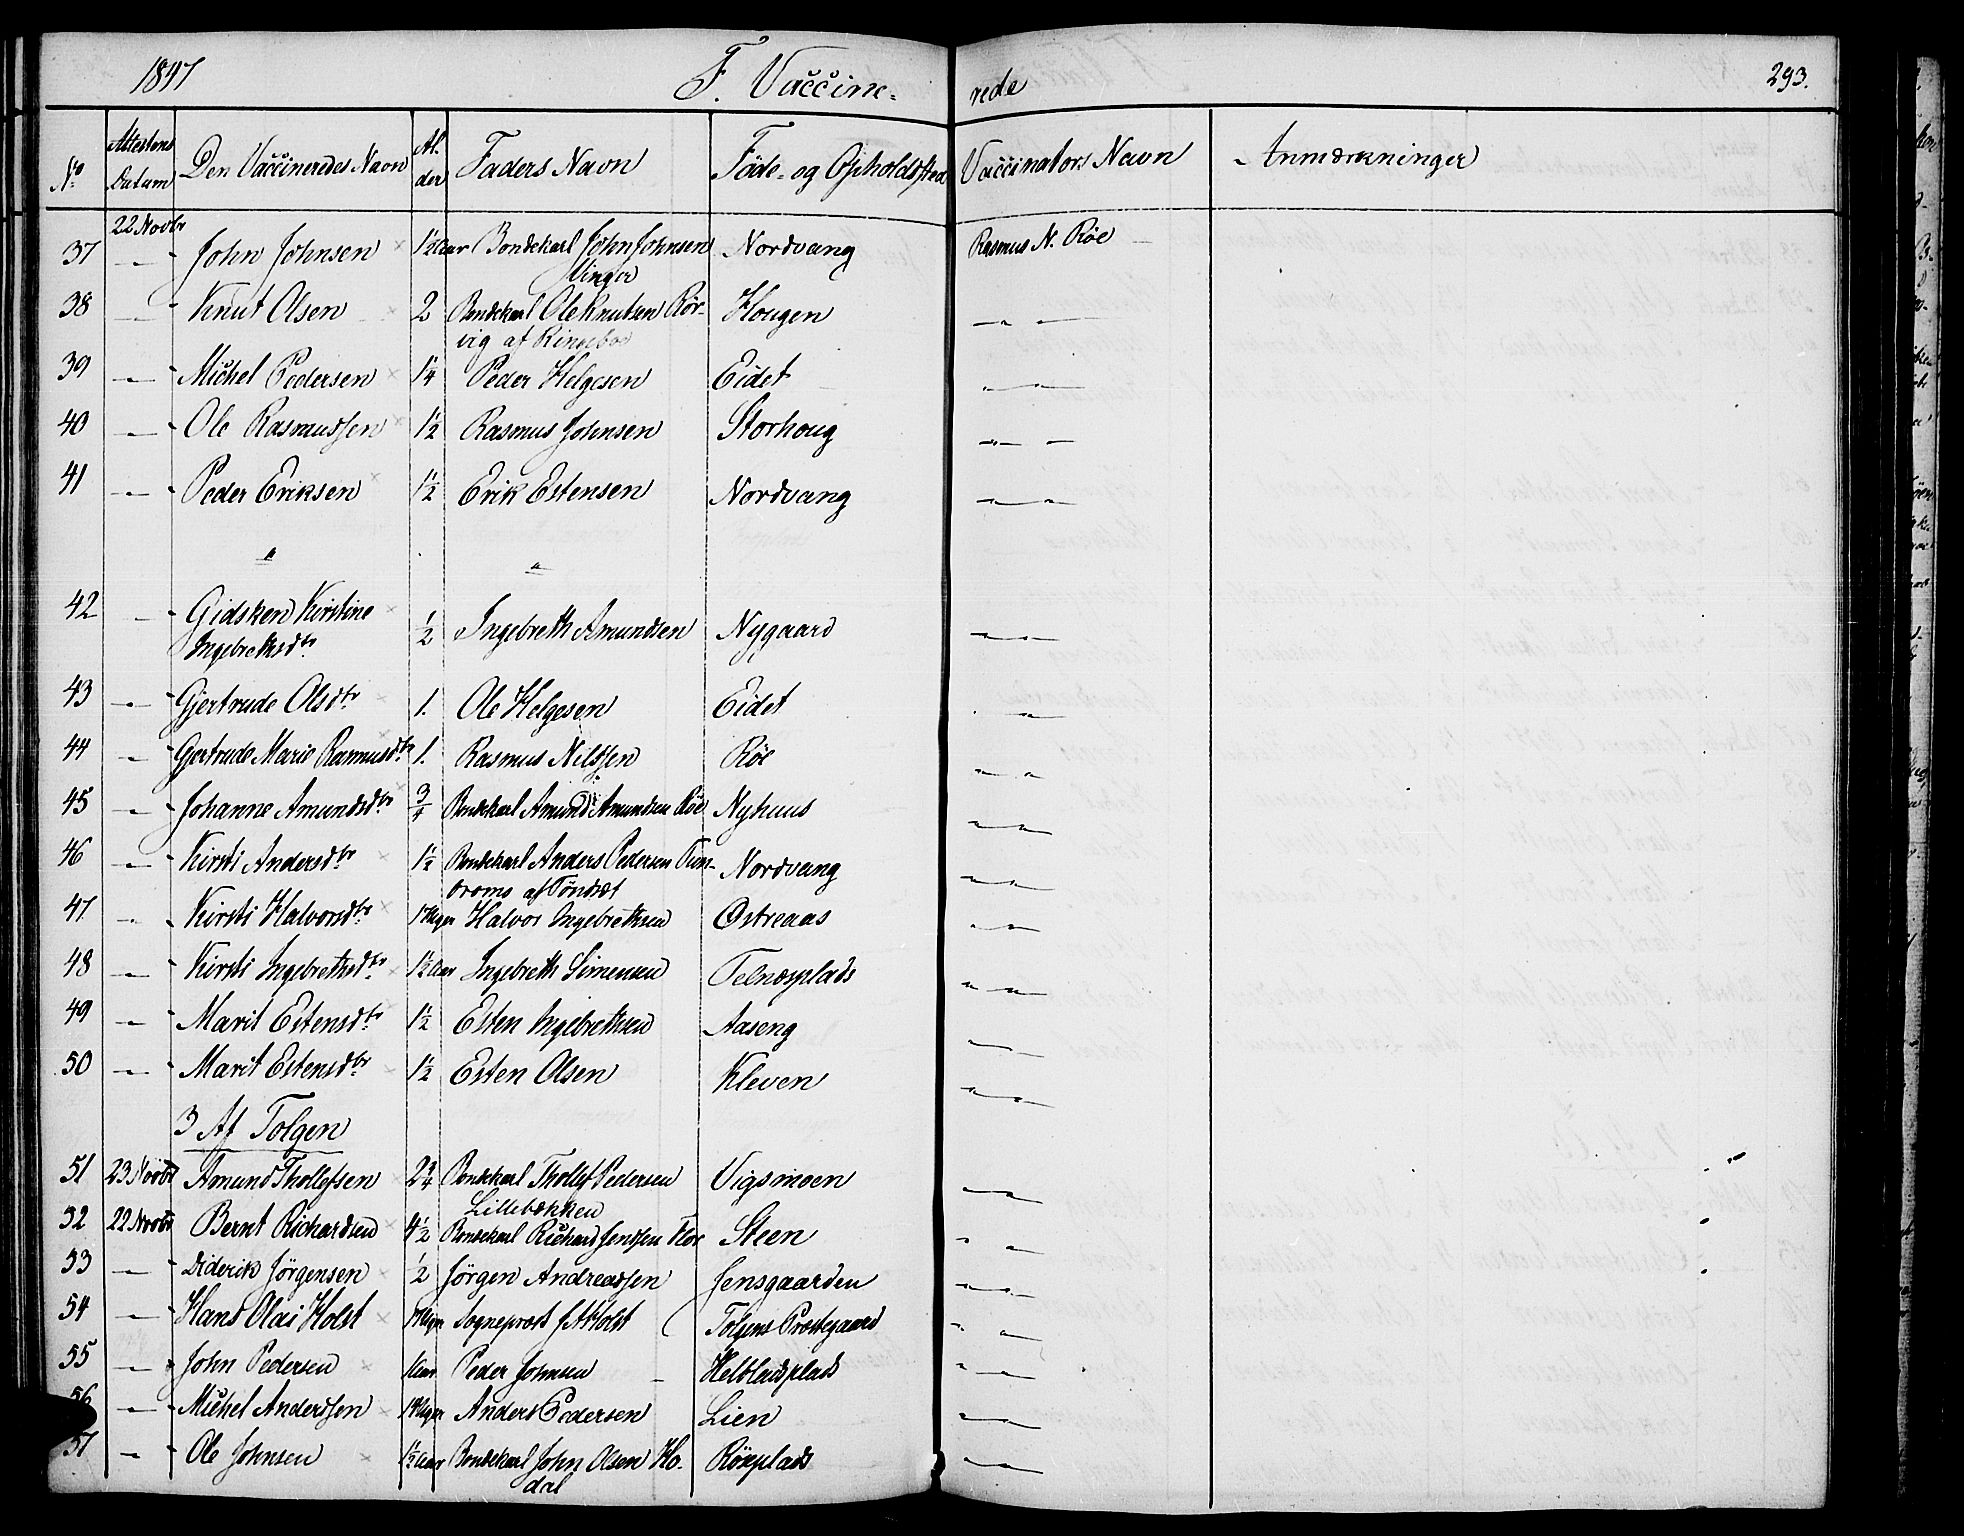 1847 F. Vaccine- rede 293.
No Attestens Datum Den Vaccineredes Navn Alder Faders Navn Föde- og Opholdssted Vaccinators Navn Anmærkninger
37 22 Novbr John Johnsen 1½ Aar Bondekarl John Johnsen Nordvang Rasmus N. Röe
Vinger
38 — Knut Olsen 2 Bondekarl Ole Knutsen Rör- Hougen — —
vig af Ringeboe
39 — Michel Pedersen 1¼ Peder Helgesen Eidet — —
40 — Ole Rasmussen 1½ Rasmus Johnsen Storhoug — —
41 — Peder Eriksen 1½ Erik Estensen Nordvang — —
" "
42 — Gidsken Kirstine ½ Ingebreth Amundsen Nygaard — —
Ingebrethsdtr
43 — Gjertrude Olsdtr 1. Ole Helgesen Eidet — —
44 — Gjertrude Marie Rasmusdtr 1. Rasmus Nilssen Röe — —
45 — Johanne Amundsdtr ¾ Bondekarl Amund Amundsen Röe Nyhuus — —
46 — Kirsti Andersdtr 1½ Bondekarl Anders Pedersen Nordvang — —
af Töndset
47 — Kirsti Halvorsdtr Uger Halvor Ingebrethsen Østreaas — —
48 — Kirsti Ingebrethsdtr 1½ Aar Ingebreth Simensen Telnæsplads — —
49 — Marit Estensdtr 1½ Esten Ingebrethsen Aaseng — —
50 — Marit Estensdtr 1½ Esten Olsen Kleven — —
3 Af Tolgen
51 23 Novbr Amund Thollefsen 2¾ Bondekarl Thollef Pedersen Vigsmoen — —
Lillebækken
52 22 Novbr Bernt Richardsen 4½ Bondekarl Richard Jenssen Steen — —
53 — Diderik Jörgensen ½ Jörgen Andreassen Jensgaarden — —
54 — Hans Olai Holst Uger Sogneprest Holst Tolgens Præstegaard — —
55 — John Pedersen 1 Aar Peder Johnsen — —
56 — Michel Anderssen Uger Anders Pedersen Lien — —
57 — Ole Johnsen 1½ Aar Bondekarl John Olsen Ho- Röseplads — —
dal